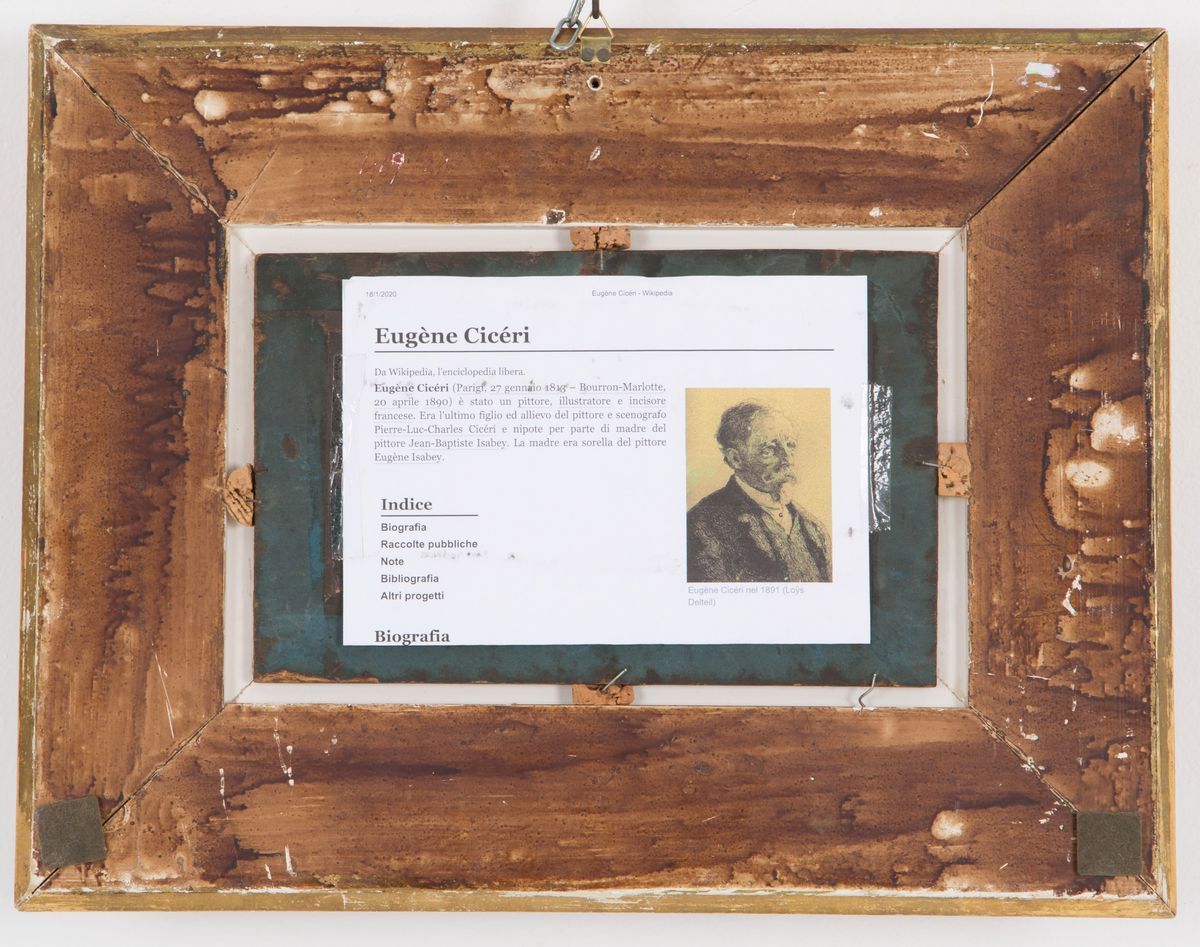 16/1/2020
Eugène Cicéri - Wikipedia
Eugène Cicéri
Da Wikipedia, l'enciclopedia libera.
Eugène Cicéri (Parigi, 27 gennaio 1813 – Bourron-Marlotte,
20 aprile 1890) è stato un pittore, illustratore e incisore
francese. Era l'ultimo figlio ed allievo del pittore e scenografo
Pierre-Luc-Charles Cicéri e nipote per parte di madre del
pittore Jean-Baptiste Isabey. La madre era sorella del pittore
Eugène Isabey.
Indice
Biografia
Raccolte pubbliche
Note
Bibliografia
Altri progetti
Eugène Cicéri nel 1891 (Loÿs
Delteil)
Biografia